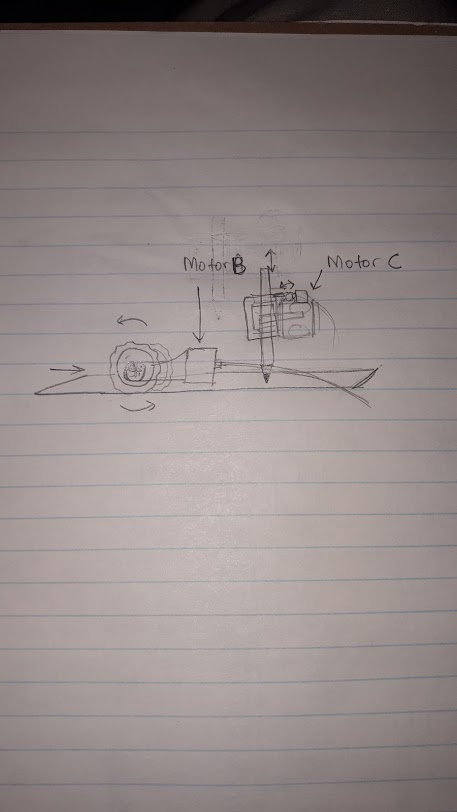 Motor B
Motor C